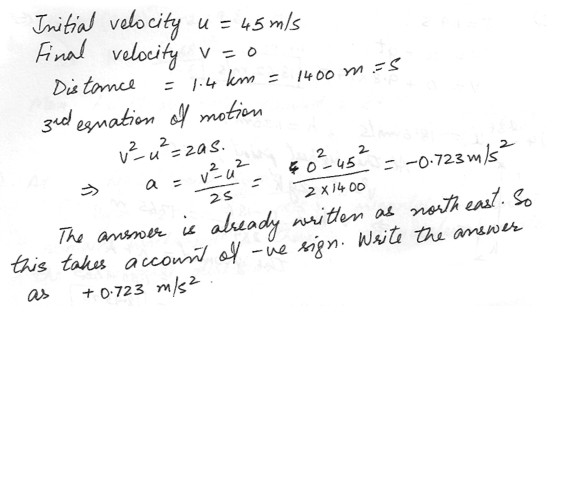 Initial velocity u = 45 m/s
Final velocity v = 0
Distance = 1.4 km = 1400 m = S
3rd equation of motion
v² - u² = 2as.
⇒ a = (v² - u²)/2S = (0² - 45²)/(2 × 1400) = -0.723 m/s²
The answer is already written as north east. So
this takes account of -ve sign. Write the answer
as +0.723 m/s².